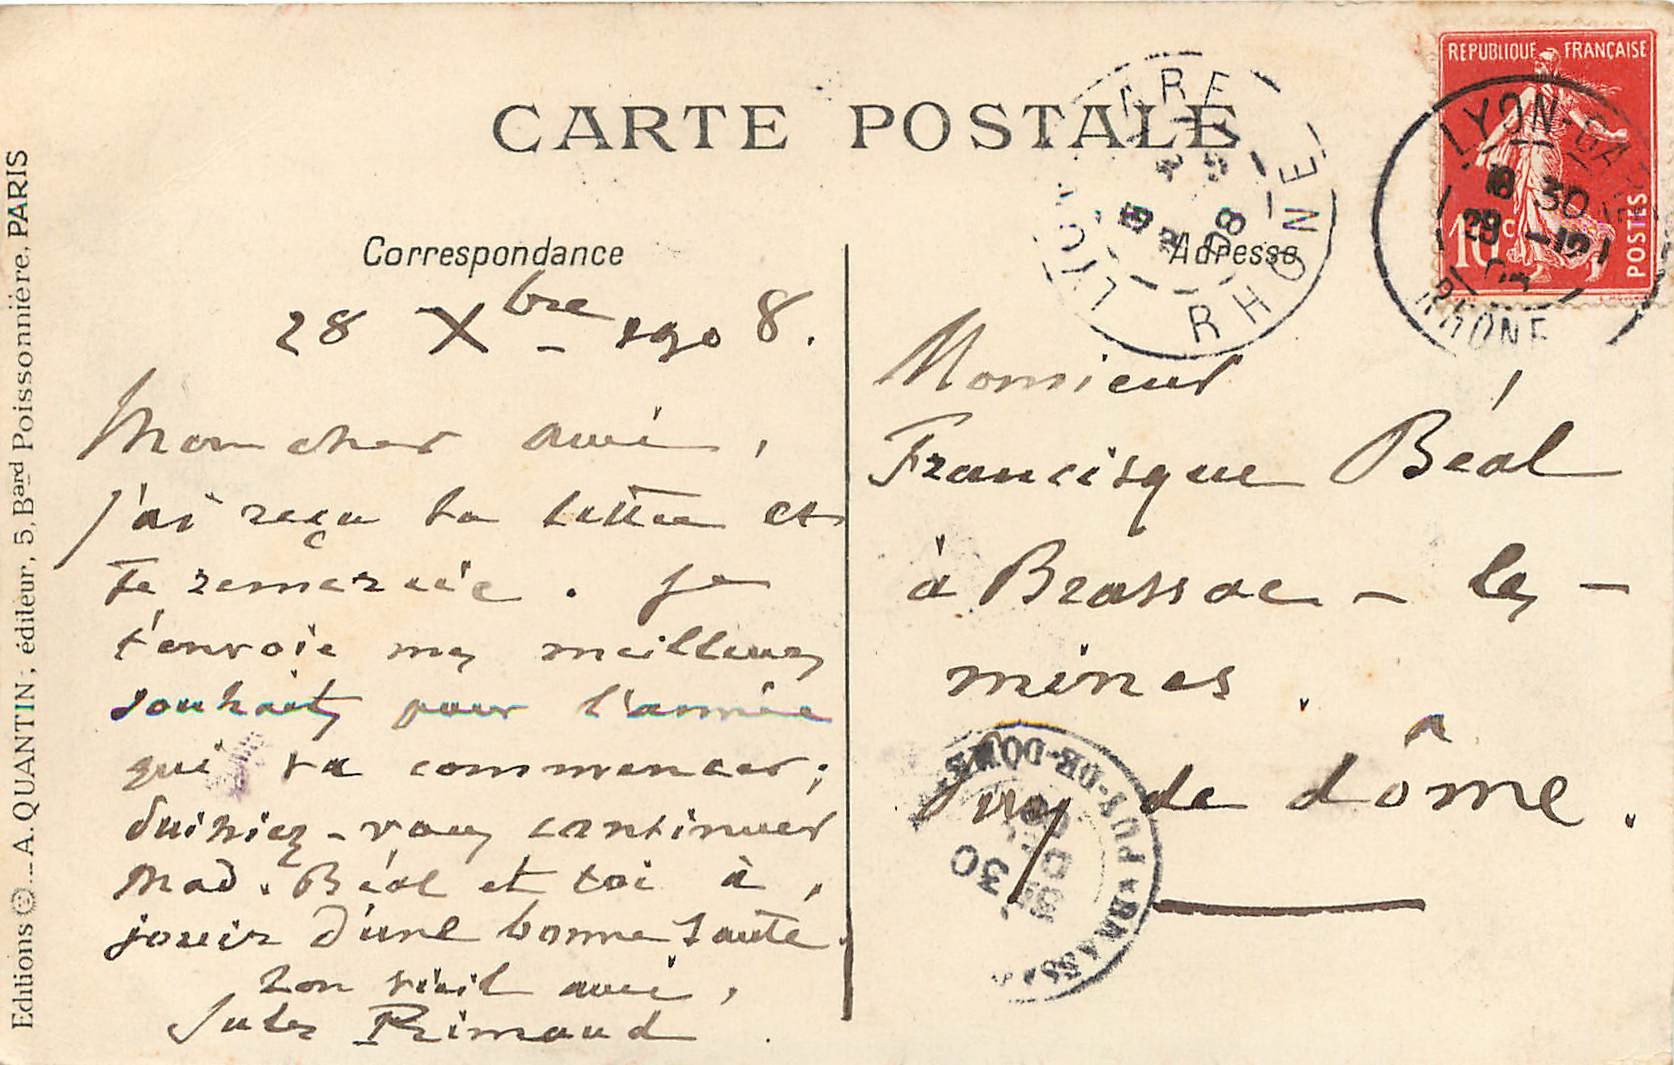 CARTE POSTALE
Correspondance
28 Xbre 1908.
Mon cher ami,
j'ai reçu ta lettre et
te remercie. Je
t'envoie mes meilleurs
souhaits pour l'année
qui va commencer;
Puissiez-vous continuer
Mad. Béal et toi à
jouir d'une bonne santé.
Ton vieil ami,
Jules Rimaud
Adresse
Monsieur
Francisque Béal
à Brassac-les-
mines.
Puy de dôme.
REPUBLIQUE FRANÇAISE
10c
POSTES
LYON-GARE
18 30
29 -12
08
RHONE
LYON GARE
RHONE
BRASSAC
PUY-DE-DOME
30
Editions A. QUANTIN; éditeur, 5, Bard Poissonnière, PARIS